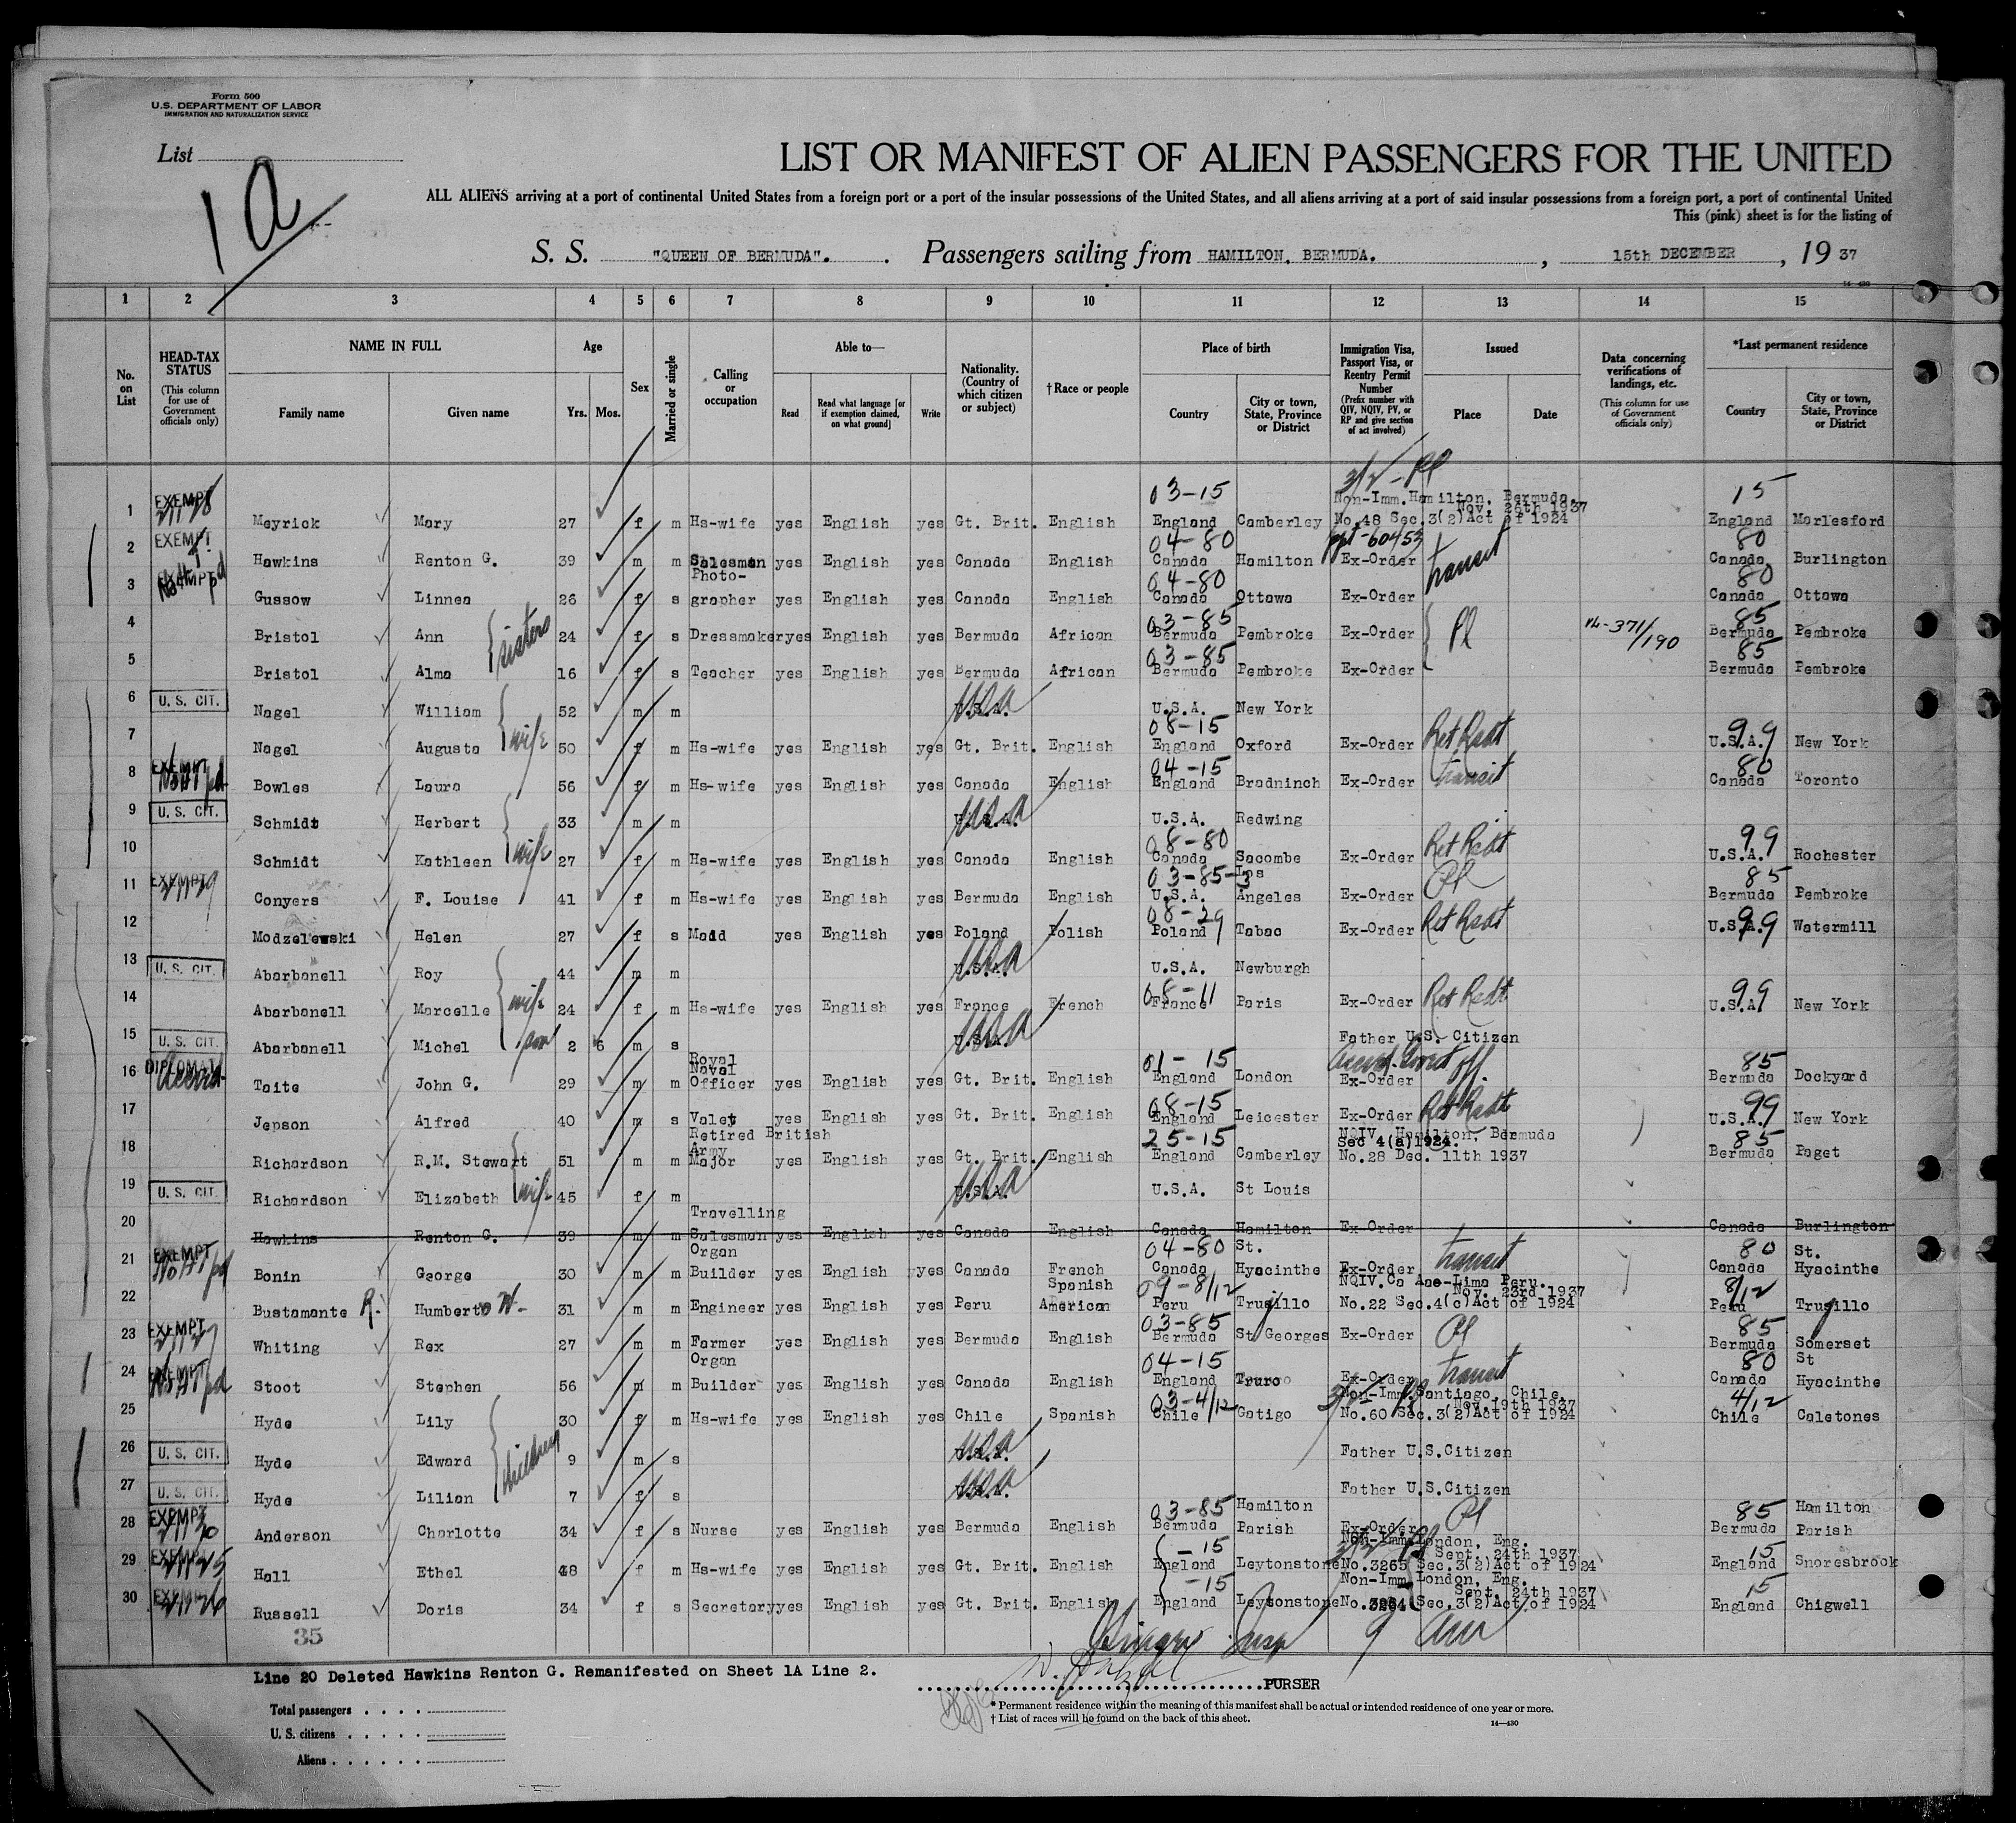 Form 500
U.S. DEPARTMENT OF LABOR
IMMIGRATION AND NATURALIZATION SERVICE
List
1a
LIST OR MANIFEST OF ALIEN PASSENGERS FOR THE UNITED
ALL ALIENS arriving at a port of continental United States from a foreign port or a port of the insular possessions of the United States, and all aliens arriving at a port of said insular possessions from a foreign port, a port of continental United
This (pink) sheet is for the listing of
S. S. "QUEEN OF BERMUDA". Passengers sailing from HAMILTON, BERMUDA. , 15th DECEMBER , 19 37
14-430
1 2 3 4 5 6 7 8 9 10 11 12 13 14 15
No. on List
HEAD-TAX STATUS (This column for use of Government officials only)
NAME IN FULL Family name Given name
Age Yrs. Mos.
Sex
Married or single
Calling or occupation
Able to— Read Read what language [or if exemption claimed, on what ground] Write
Nationality. (Country of which citizen or subject)
†Race or people
Place of birth Country City or town, State, Province or District
Immigration Visa, Passport Visa, or Reentry Permit Number (Prefix number with QIV, NQIV, PV, or RP and give section of act involved)
Issued Place Date
Data concerning verifications of landings, etc. (This column for use of Government officials only)
*Last permanent residence Country City or town, State, Province or District
1 EXEMPT Meyrick Mary 27 f m Hs-wife yes English yes Gt. Brit. English 03-15 England Camberley Non-Imm. Hamilton, Bermuda, Nov. 26th 1937 No.48 Sec.3(2)Act of 1924 15 England Marlesford
2 EXEMPT Hawkins Renton G. 39 m m Salesman yes English yes Canada English 04-80 Canada Hamilton ppt-60453 Ex-Order transit 80 Canada Burlington
3 EXEMPT Gussow Linnea 26 f s Photo-grapher yes English yes Canada English 04-80 Canada Ottawa Ex-Order 80 Canada Ottawa
4 Bristol Ann sisters 24 f s Dressmaker yes English yes Bermuda African 03-85 Bermuda Pembroke Ex-Order Pl 14-371/190 85 Bermuda Pembroke
5 Bristol Alma 16 f s Teacher yes English yes Bermuda African 03-85 Bermuda Pembroke Ex-Order 85 Bermuda Pembroke
6 U. S. CIT. Nagel William 52 m m U.S.A. USA U.S.A. New York
7 Nagel Augusta wife 50 f m Hs-wife yes English yes Gt. Brit. English 08-15 England Oxford Ex-Order Ret Redt 99 U.S.A. New York
8 EXEMPT Bowles Laura 56 f m Hs-wife yes English yes Canada English 04-15 England Bradninch Ex-Order transit 80 Canada Toronto
9 U. S. CIT. Schmidt Herbert 33 m m U.S.A. USA U.S.A. Redwing
10 Schmidt Kathleen wife 27 f m Hs-wife yes English yes Canada English 08-80 Canada Sacombe Ex-Order Ret Redt 99 U.S.A. Rochester
11 EXEMPT Conyers F. Louise 41 f m Hs-wife yes English yes Bermuda English 03-85-3 U.S.A. Los Angeles Ex-Order Pl 85 Bermuda Pembroke
12 Modzelewski Helen 27 f s Maid yes English yes Poland Polish 08-29 Poland Tabac Ex-Order Ret Redt 99 U.S.A. Watermill
13 U. S. CIT. Abarbanell Roy 44 m m U.S.A. USA U.S.A. Newburgh
14 Abarbanell Marcelle wife 24 f m Hs-wife yes English yes France French 08-11 France Paris Ex-Order Ret Redt 99 U.S.A. New York
15 U. S. CIT. Abarbanell Michel son 2 6 m s U.S.A. USA Father U.S. Citizen
16 DIPLOMAT Taite John G. 29 m m Royal Naval Officer yes English yes Gt. Brit. English 01-15 England London Ex-Order 85 Bermuda Dockyard
17 Jepson Alfred 40 m s Valet yes English yes Gt. Brit. English 08-15 England Leicester Ex-Order Ret Redt 99 U.S.A. New York
18 Richardson R.M. Stewart 51 m m Retired British Army Major yes English yes Gt. Brit. English 25-15 England Camberley NQIV. Hamilton, Bermuda Sec 4(a)1924. No.28 Dec. 11th 1937 85 Bermuda Paget
19 U. S. CIT. Richardson Elizabeth wife 45 f m U.S.A. USA U.S.A. St Louis
20 Hawkins Renton G. 39 m m Travelling Salesman yes English yes Canada English Canada Hamilton Ex-Order Canada Burlington
21 EXEMPT Bonin George 30 m m Organ Builder yes English yes Canada French 04-80 Canada St. Hyacinthe Ex-Order transit 80 Canada St. Hyacinthe
22 Bustamante R. Humberto W- 31 m m Engineer yes English yes Peru Spanish American 09-8/12 Peru Trugillo NQIV.Ca Aae-Lima Peru. Nov. 23rd 1937 No.22 Sec.4(c)Act of 1924 8/12 Peru Trugillo
23 EXEMPT Whiting Rex 27 m m Farmer yes English yes Bermuda English 03-85 Bermuda St Georges Ex-Order Pl 85 Bermuda Somerset
24 EXEMPT Stoot Stephen 56 m m Organ Builder yes English yes Canada English 04-15 England Truro Ex-Order transit 80 Canada St Hyacinthe
25 Hyde Lily 30 f m Hs-wife yes English yes Chile Spanish 03-4/12 Chile Gatigo Non-Imm. Santiago, Chile. Nov. 19th 1937 No.60 Sec.3(2)Act of 1924 4/12 Chile Caletones
26 U. S. CIT. Hyde Edward children 9 m s U.S.A. USA Father U.S.Citizen
27 U. S. CIT. Hyde Lilian 7 f s U.S.A. USA Father U.S.Citizen
28 EXEMPT Anderson Charlotte 34 f s Nurse yes English yes Bermuda English 03-85 Bermuda Hamilton Parish Ex-Order Pl 85 Bermuda Hamilton Parish
29 EXEMPT Hall Ethel 48 f m Hs-wife yes English yes Gt. Brit. English -15 England Leytonstone Non-Imm. London, Eng. Sept. 24th 1937 No.3265 Sec.3(2)Act of 1924 15 England Snaresbrook
30 EXEMPT Russell Doris 34 f s Secretary yes English yes Gt. Brit. English -15 England Leytonstone Non-Imm. London, Eng. Sept. 24th 1937 No.3264 Sec.3(2)Act of 1924 15 England Chigwell
35
Line 20 Deleted Hawkins Renton G. Remanifested on Sheet 1A Line 2.
PURSER
Total passengers
U. S. citizens
Aliens
* Permanent residence within the meaning of this manifest shall be actual or intended residence of one year or more.
† List of races will be found on the back of this sheet.
14—430